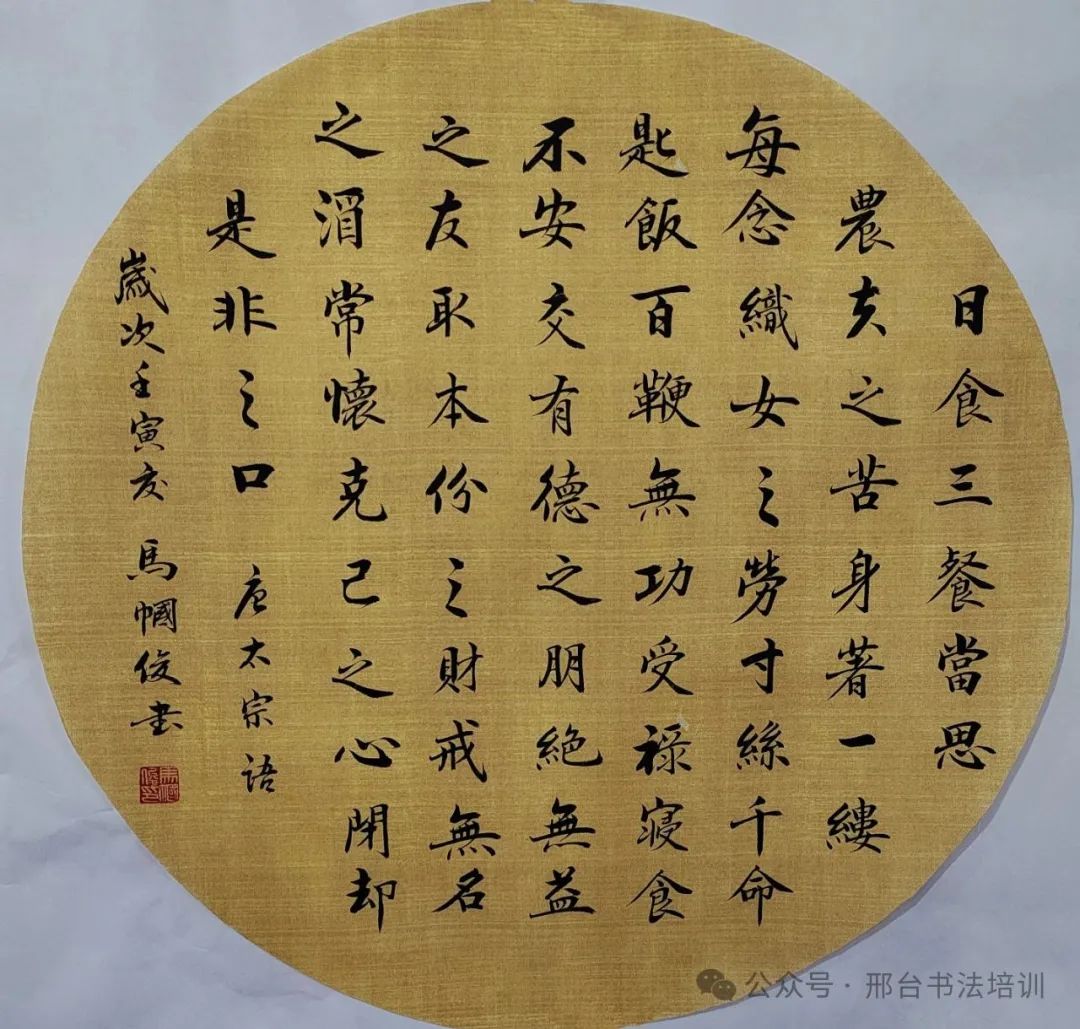 日食三餐當思
農夫之苦身著一縷
每念織女之勞寸絲千命
匙飯百鞭無功受祿寢食
不安交有德之朋絕無益
之友取本份之財戒無名
之酒常懷克己之心閉却
是非之口 唐太宗語
歲次壬寅夏 馬幗俊書
公众号·邢台书法培训